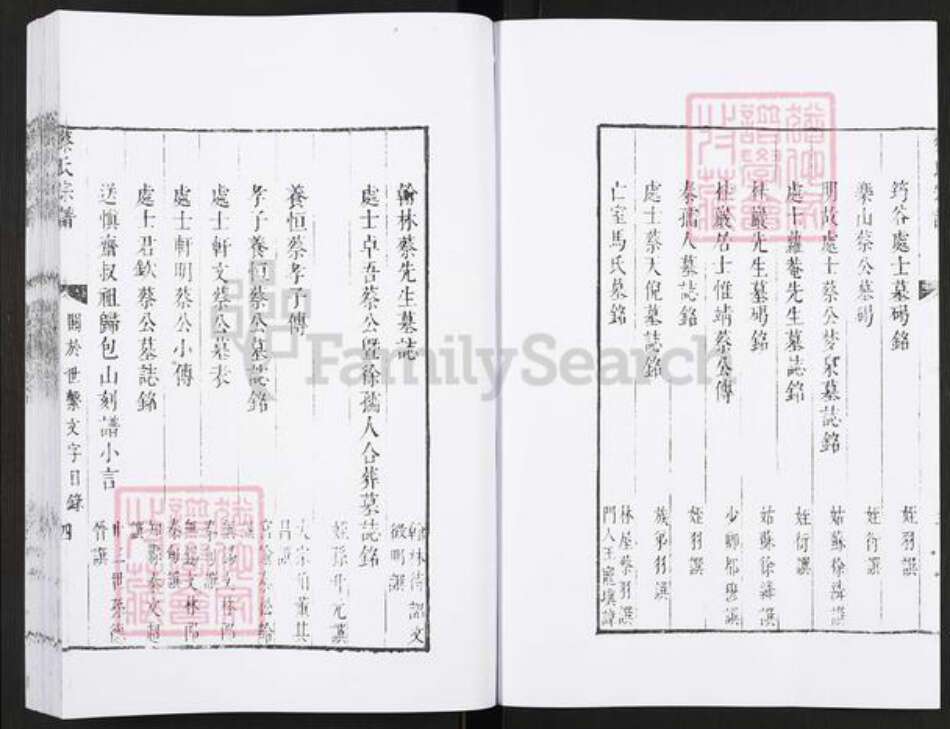 筠谷處士墓碣銘 姪羽譔
樂山蔡公墓碣 姪衍譔
明故處士蔡公夢泉墓誌銘 姑蘇徐縉譔
處士蘿菴先生墓誌銘 姪衍譔
林巖先生墓碣銘 姑蘇徐縉譔
桂巖居士惟靖蔡公傳 少卿都譔
秦孺人墓誌銘 姪羽譔
處士蔡天倪墓誌銘 族弟羽譔
亡室馬氏墓銘 林屋蔡羽譔
門人王寵填諱
翰林蔡先生墓誌 翰林待詔文
徵明譔
處士卓吾蔡公暨徐孺人合葬墓誌銘 姪孫升元譔
養恒蔡孝子傳 大宗伯董其
昌譔
孝子養恒蔡公墓誌銘
處士軒文蔡公墓表
處士軒明蔡公小傳
處士君欽蔡公墓誌銘
送慎齋叔祖歸包山刻譜小言
譔
蔡氏宗譜 關於世繫文字目錄 四
FamilySearch